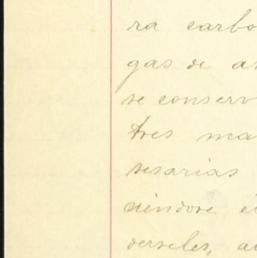 ra carbo
gas de a
se conserv
tres ma
sesarias
ciendose e
derseles, a